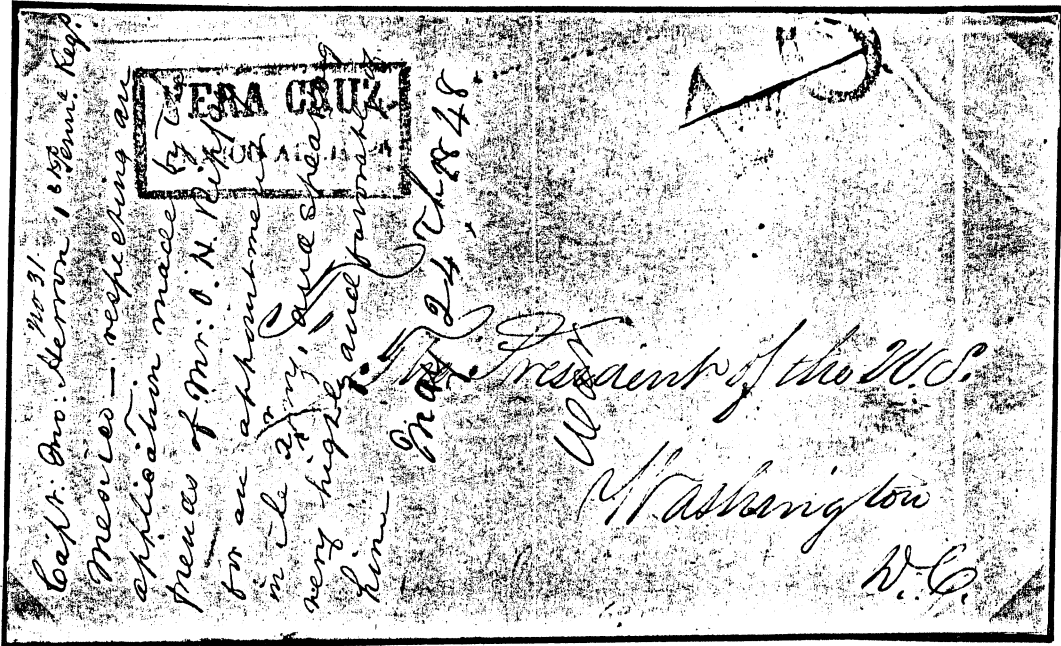 Capt. Jno. Herron 1st Penna. Regt.
No 31
Mexico — respecting an
application made by the
friends of Mr. P. H.
for an appointment
in the army, and speaking
very highly and favorably of
him
May 24th 1848
VERA CRUZ
The President of the U.S.
Washington
D.C.